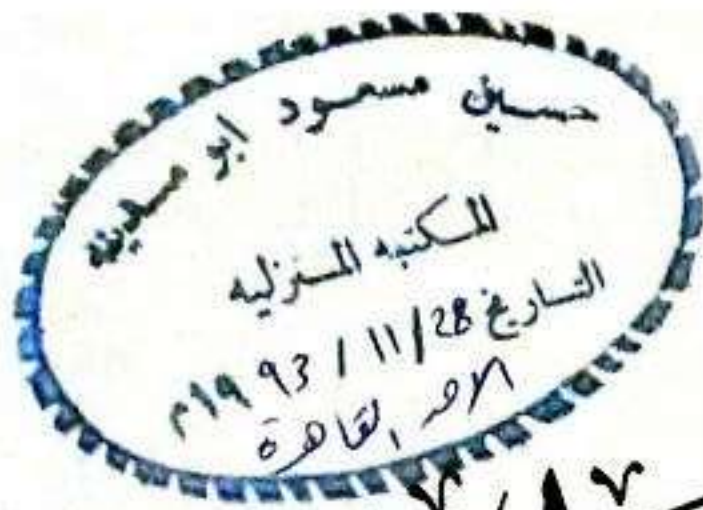 حسين مسعود ابو مدينه
المكتبه المنزليه
التاريخ 28/ 11 / 93 ١٩م
الاحد القاهرة